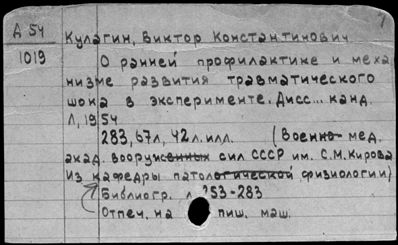 7
Д 54
Кулагин, Виктор Константинович
1019
О ранней профилактике и меха
низме развития травматического
шока в эксперименте. Дисс... канд.
Л, 1954
283, 67л, 42 л. илл. (Военно- мед.
акад. вооруженных сил СССР им. С.М. Кирова
Из кафедры патологической физиологии)
Библиогр. л 253-283
Отпеч. на пиш. маш.